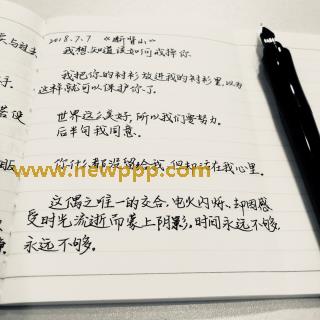 2018.7.7 《断背山》
我想知道该如何戒掉你
我把你的衬衫放进我的衬衫里,以为
这样就可以保护你了。
世界这么美好,所以我们要努力。
后半句我同意。
你什么都没留给我,但 活在我心里。
www.newppp.com
这偶之唯一的交合,电火闪烁、却因感
受时光流逝而蒙上阴影。时间永远不够,
永远不够。
与过去
手.
若使